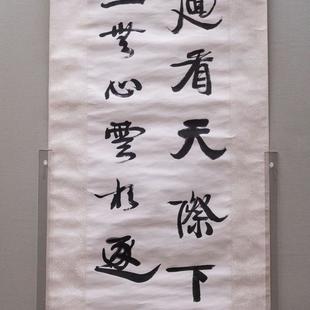 迴看天際下
上無心雲相逐